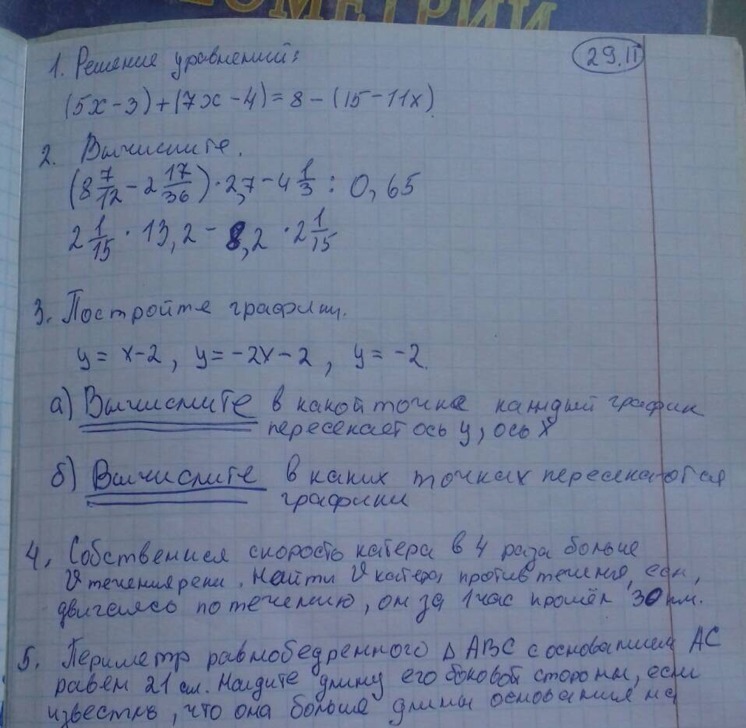 ГЕОМЕТРИИ
29.II
1. Решение уравнений:
(5x-3)+(7x-4)=8-(15-11x)
2. Вычислите.
(8 7/12 - 2 17/36) · 2,7 - 4 1/3 : 0,65
2 1/15 · 13,2 - 8,2 · 2 1/15
3. Постройте графики.
y = x-2, y = -2x-2, y = -2.
а) Вычислите в какой точке каждый график
пересекает ось y, ось X
б) Вычислите в каких точках пересекаются
графики
4. Собственная скорость катера в 4 раза больше
V течения реки. Найти V катера против течения, если,
двигаясь по течению, он за 1 час прошёл 30 км.
5. Периметр равнобедренного Δ ABC с основанием AC
равен 21 см. Найдите длину его боковой стороны, если
известно, что она больше длины основания на